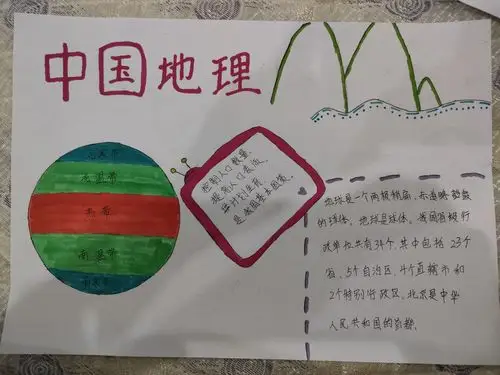 中国地理
北寒带
北温带
热带
南温带
南寒带
控制人口数量,
提高人口素质,
实行计划生育
是我国基本国策。
地球是一个两极稍扁、赤道略鼓
的球体。地球是球体。我国省级行
政单位共有34个,其中包括23个
省、5个自治区、4个直辖市和
2个特别行政区,北京是中华
人民共和国的首都。